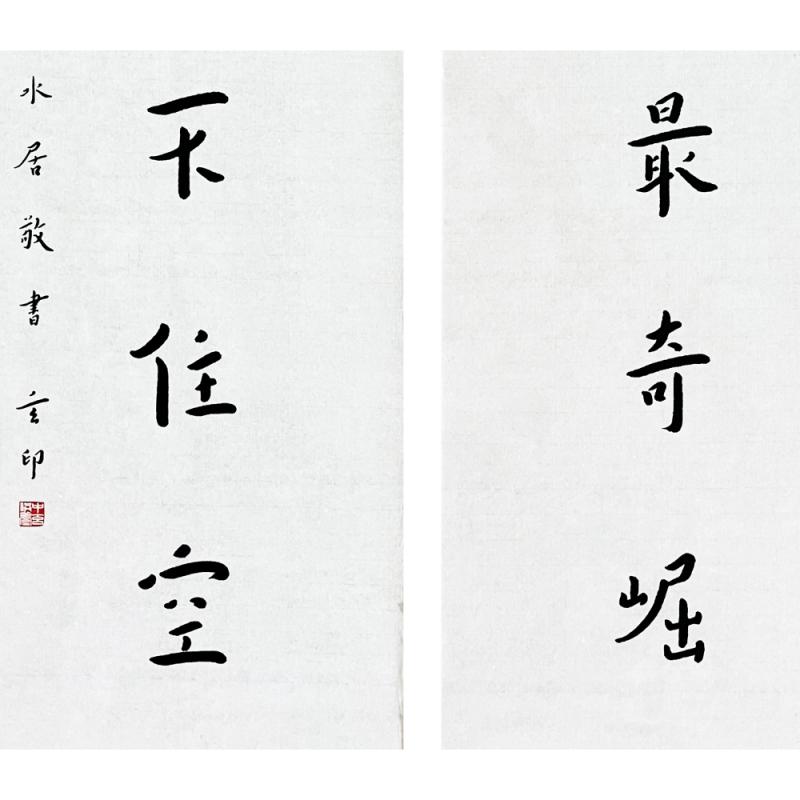 最奇崛
不住空
水居敬書玄印